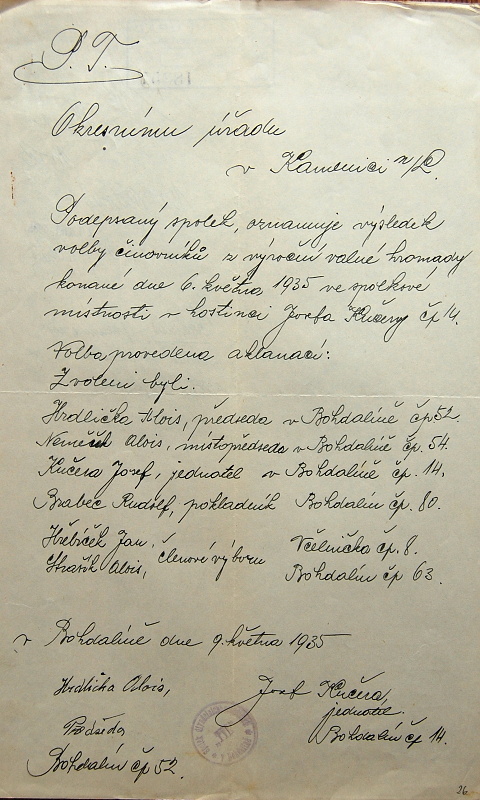 P. T.
Okresnímu úřadu
v Kamenici n/L.
Podepsaný spolek, oznamuje výsledek
volby činovníků z výroční valné hromady
konané dne 6. května 1935 ve spolkové
místnosti v hostinci Josefa Kučery čp 14.
Volba provedena aklanací:
Zvoleni byli:
Hrdlička Alois, předseda v Bohdalíně čp 52.
Němeček Alois, místopředseda v Bohdalíně čp. 54.
Kučera Josef, jednatel v Bohdalíně čp. 14.
Brabec Rudolf, pokladník Bohdalín čp. 80.
Hřebíček Jan, členové výboru Včelnička čp. 8.
Alois, Bohdalín čp 63.
v Bohdalíně dne 9. května 1935
Hrdlička Alois, Josef Kučera,
jednatel.
Předseda Bohdalín čp 14.
Bohdalín čp 52.
26